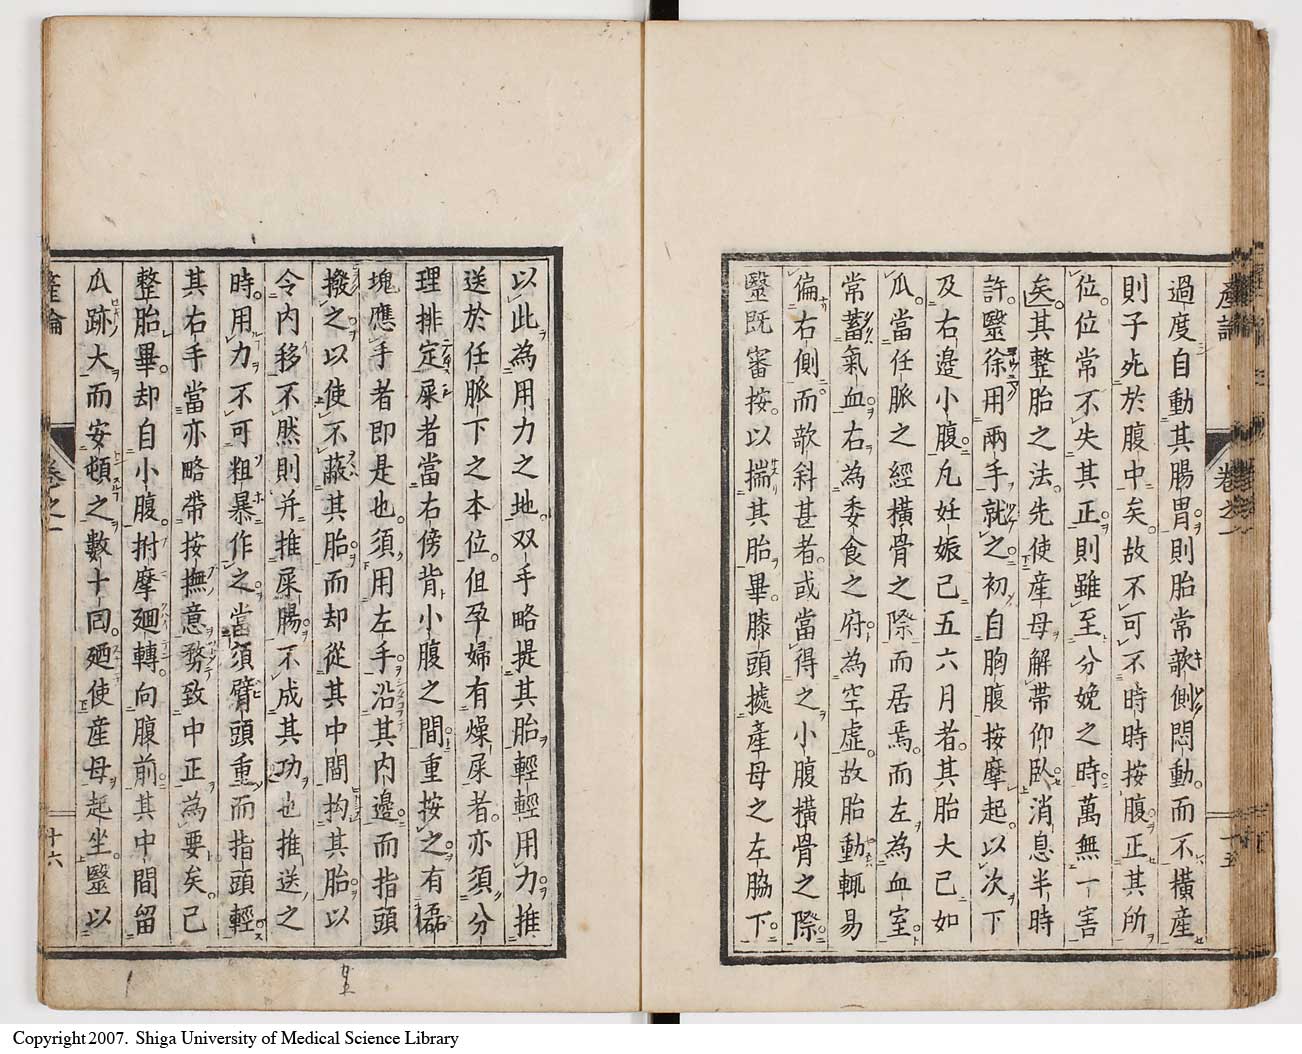 過度自動其腸胃則胎常欹側悶動而不横産
則子死於腹中矣故不可不時時按腹正其所
位位常不失其正則雖至分娩之時萬無一害
矣其整胎之法先使産母解帯仰臥消息半時
許毉徐用兩手就之初自胸腹按摩起以次下
及右邊小腹凡妊娠已五六月者其胎大已如
瓜當任脈之經横骨之際而居焉而左為血室
常蓄氣血右為委食之府為空虚故胎動輒易
偏右側而欹斜甚者或當得之小腹横骨之際
毉既審按以揣其胎畢膝頭據産母之左脇下
以此為用力之地双手略提其胎輕輕用力推
送於任脈下之本位但孕婦有燥屎者亦須分
理排定屎者當右傍背小腹之間重按之有磊
塊應手者即是也須用左手沿其内邊而指頭
撥之以使不蔽其胎而却從其中間抅其胎以
令内移不然則并推屎腸不成其功也推送之
時用力不可粗暴作之當須臂頭重而指頭輕
其右手當亦略帯按撫意務致中正為要矣已
整胎畢却自小腹拊摩廻轉向腹前其中間留
瓜跡大而安頓之數十回廼使産母起坐毉以
産論
卷之一
十六
Copyright 2007. Shiga University of Medical Science Library